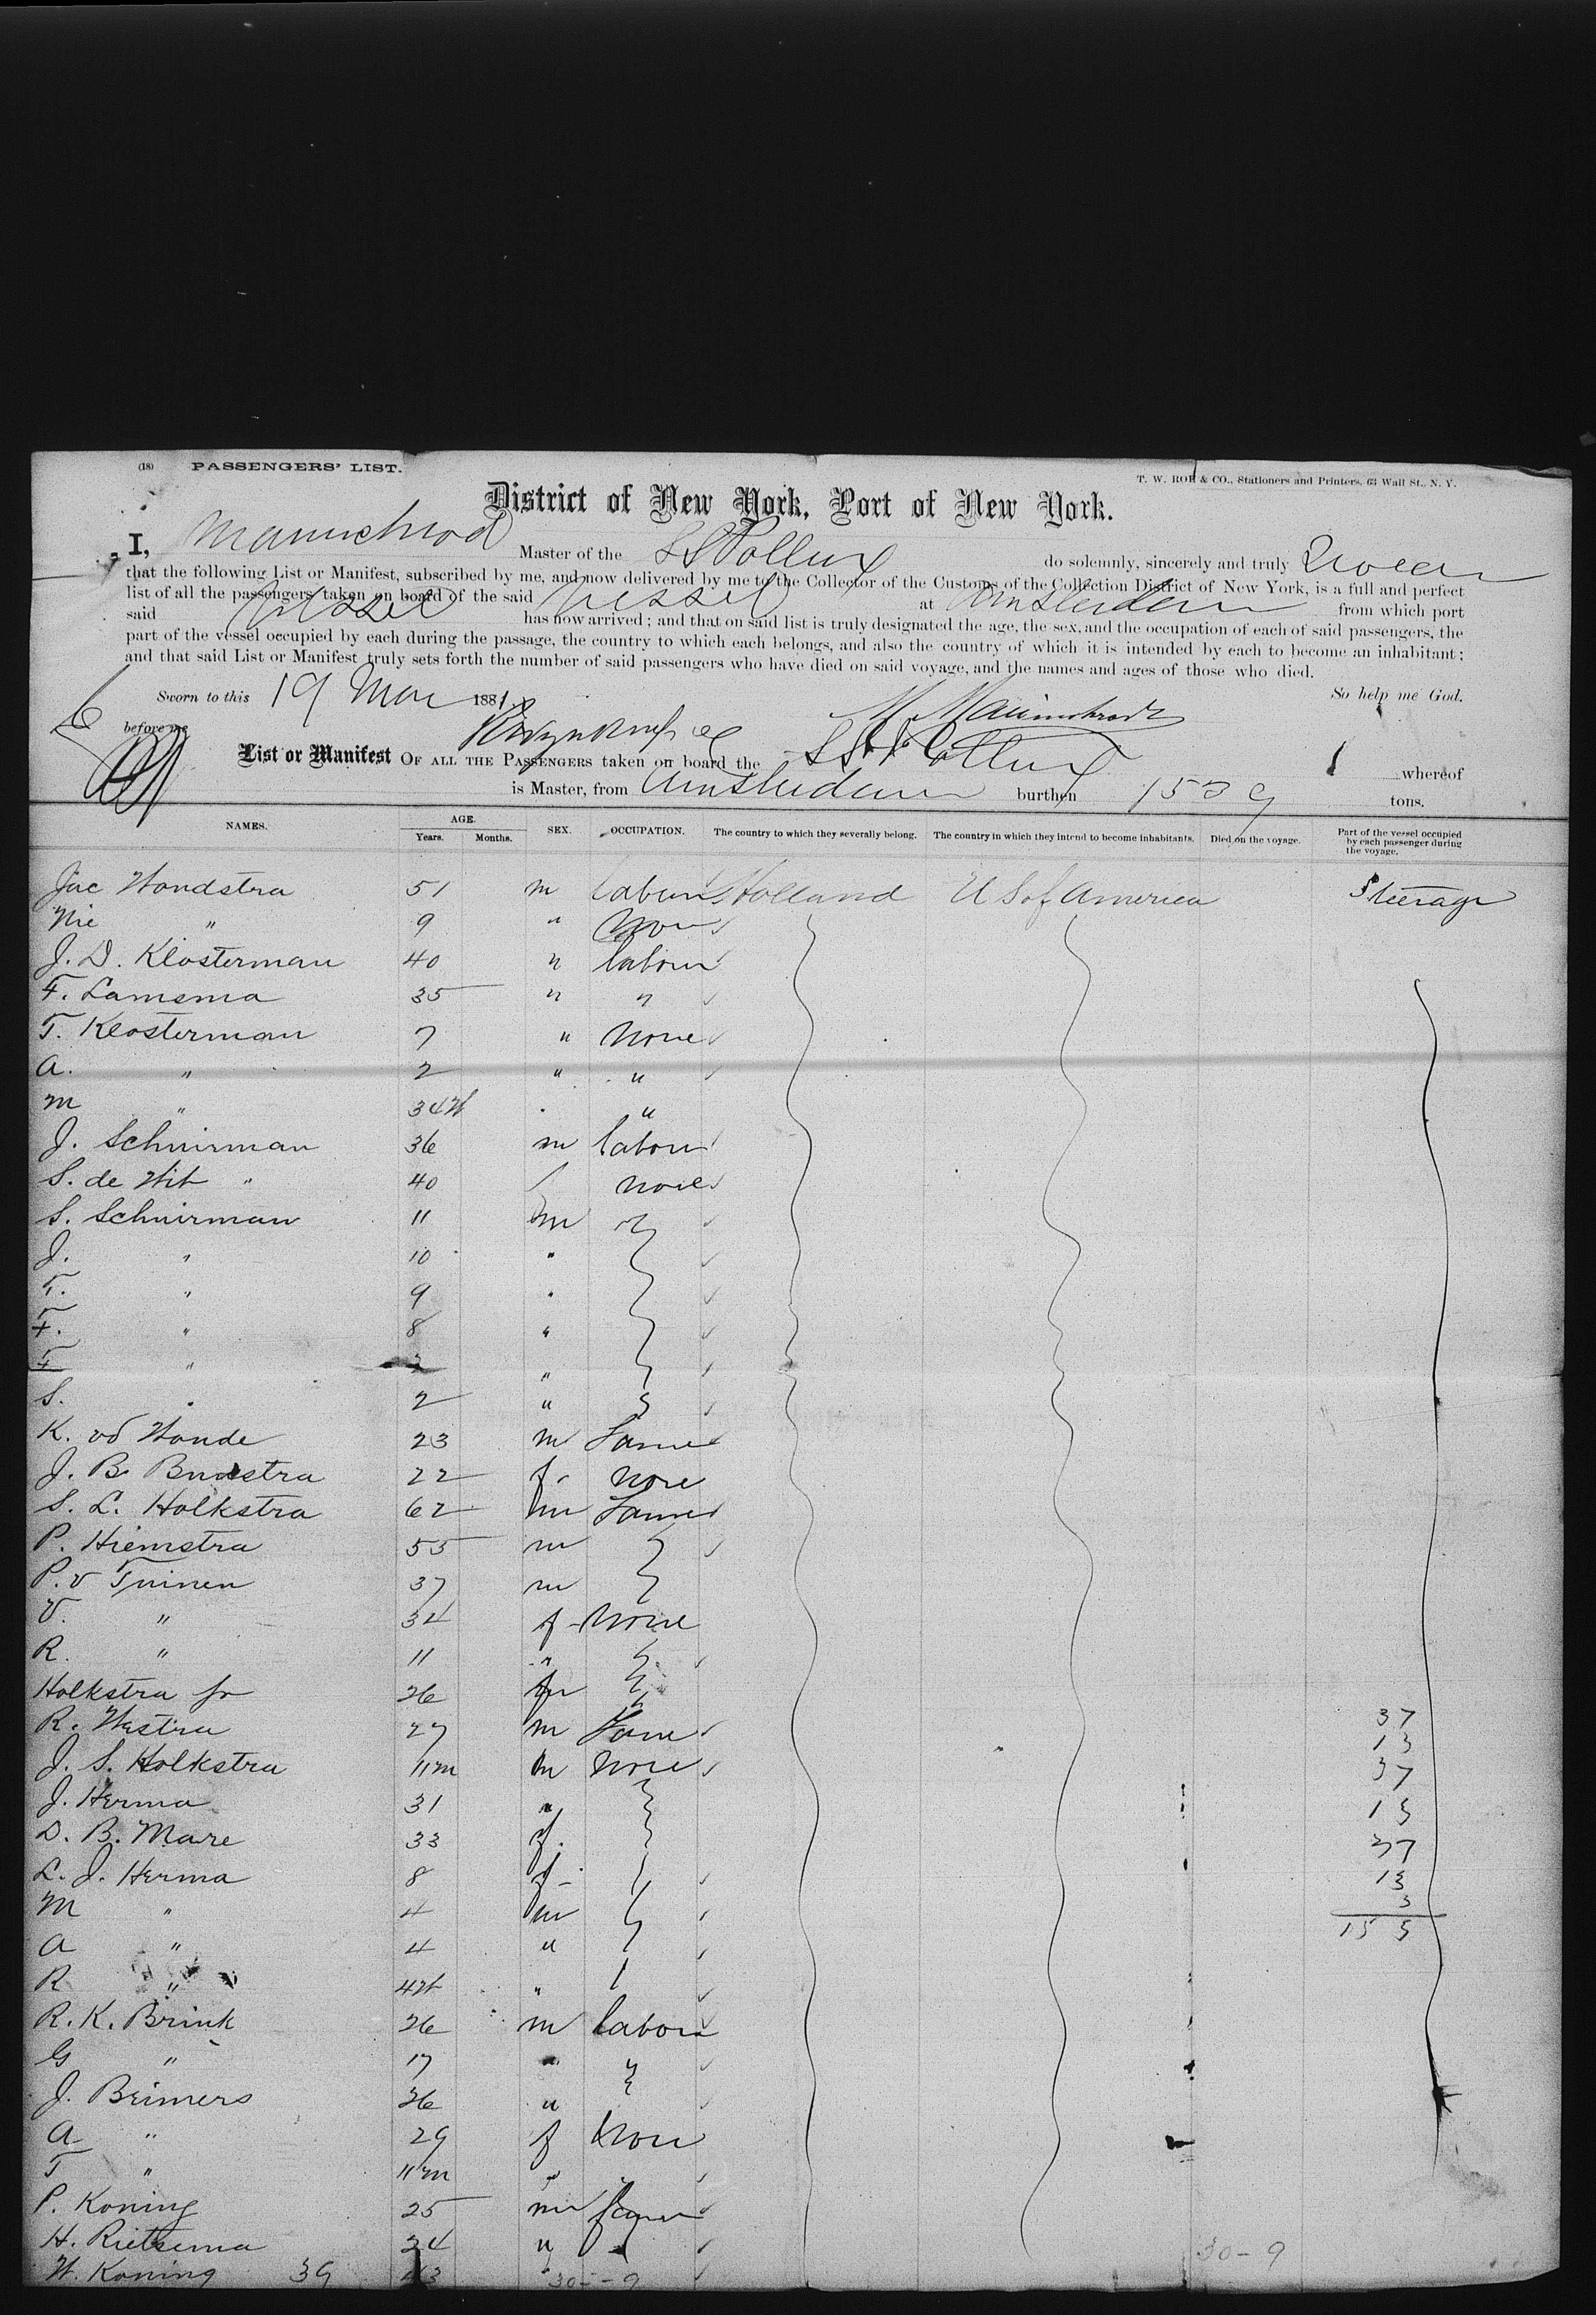 (18) PASSENGERS' LIST.
T. W. ROE & CO., Stationers and Printers, 63 Wall St., N. Y.
District of New York, Port of New York.
I, Master of the SS Pollux do solemnly, sincerely and truly swear
that the following List or Manifest, subscribed by me, and now delivered by me to the Collector of the Customs of the Collection District of New York, is a full and perfect
list of all the passengers taken on board of the said Vessel at Amsterdam from which port
said Vessel has now arrived; and that on said list is truly designated the age, the sex, and the occupation of each of said passengers, the
part of the vessel occupied by each during the passage, the country to which each belongs, and also the country of which it is intended by each to become an inhabitant;
and that said List or Manifest truly sets forth the number of said passengers who have died on said voyage, and the names and ages of those who died.
Sworn to this 19 Mar 1881. So help me God.
before me
List or Manifest OF ALL THE PASSENGERS taken on board the SS Pollux whereof
is Master, from Amsterdam burthen tons.
NAMES. AGE. Years. Months. SEX. OCCUPATION. The country to which they severally belong. The country in which they intend to become inhabitants. Died on the voyage. Part of the vessel occupied by each passenger during the voyage.
Jac Hondstra 51 m labour Holland US of America Steerage
Nic " 9 " None
J. D. Klosterman 40 " labour
F. Lamsma 35 " "
T. Klosterman 7 " None
A. " 2 " "
M " 34 "
J. Schuirman 36 m labour
S. de Wit " 40 None
S. Schuirman 11 m
J. " 10 "
T. " 9 "
F. " 8 "
F " "
S. " 2 "
K. vd Woude 23 m Farmer
J. B. 22 f. None
S. L. Holkstra 62 m Farmer
P. Hiemstra 55 m
P. v Tuinen 37 m
V. " 34 f None
R. " 11 "
Holkstra jr 26 m
R. Westra 27 m Farmer 37
13
J. S. Holkstra 11m m None 37
J. Herma 31 " 13
D. B. Mare 33 f. 37
L. J. Herma 8 f 13
3
M " 4 m 155
A " 4 "
R " "
R. K. Brink 26 m labour
G " 17 "
J. Beimers 26 "
A " 29 f None
T " 11m "
P. Koning 25 m farmer
H. Rietsema 24 " 30-9
W. Koning 39 30--9